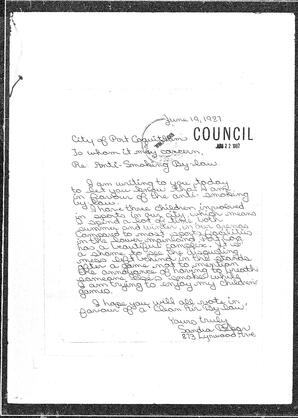 June 19, 1987
COUNCIL
JUN 22 1987
City of Port Coquitlam
To whom it may concern,
Re Anti-Smoking By-law
I am writing to you today
to let you know that I am
in favour of the anti-smoking
by-law.
I have three children involved
in sports in our city which means
I spend a lot of time both
summer and winter, in our arenas
Compared to most sports facilities
in the lower mainland Poco
has a beautiful complex. It is
a shame to see the disgusting
mess left behind in the stands
after a game not to mention
the annoyance of having to breath
someone else's smoke while
I am trying to enjoy my children's
games.
I hope you will all vote in
favour of a Clean Air By-law.
Yours truly
Sandra
873 Lynwood Ave